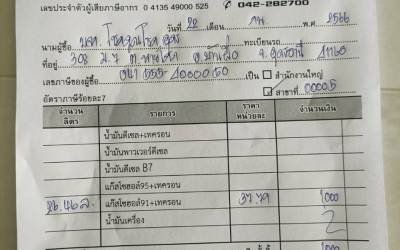 เลขประจำตัวผู้เสียภาษีอากร 0 4135 49000 525
042-282700
วันที่ 22 เดือน กพ. พ.ศ. 2566
นามผู้ซื้อ ทะเบียนรถ
ที่อยู่ 308 ม.7 จ.อุดรธานี 41160
เลขภาษีของผู้ซื้อ เป็น สำนักงานใหญ่
อัตราภาษีร้อยละ7 สาขาที่ 00005
จำนวน ลิตร รายการ ราคา หน่วยละ จำนวนเงิน
น้ำมันดีเซล+เทครอน
น้ำมันพาวเวอร์ดีเซล
น้ำมันดีเซล B7
แก๊สโซฮอล์95+เทครอน
26.46 ล. แก๊สโซฮอล์91+เทครอน 37.79 1000
น้ำมันเครื่อง
1000